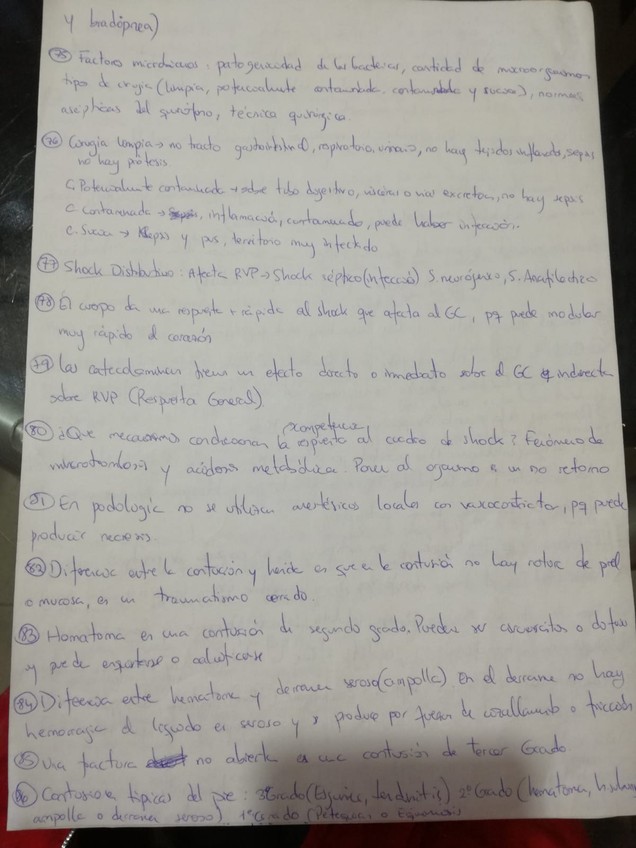 y bradipnea)
(75) Factores microbianos: patogenicidad de las bacterias, cantidad de microorganismos
tipo de cirugía (limpia, potencialmente contaminada, contaminada y sucia), normas
asépticas del quirófano, técnica quirúrgica.
(76) Cirugía limpia → no tracto gastrointestinal, respiratorio, urinario, no hay tejidos inflamados, sepsis
no hay prótesis
C. Potencialmente contaminada → sobre tubo digestivo, vias excretoras, no hay sepsis
C. Contaminada → inflamación, contaminado, puede haber infección.
C. Sucia → Sepsis y pus, territorio muy infectado
(77) Shock Distributivo: Afecta RVP → Shock séptico (infección) S. neurógeno, S. Anafiláctico
(78) El cuerpo da una respuesta + rápida al shock que afecta al GC, pq puede modular
muy rápido el corazón
(79) Las catecolaminas tienen un efecto directo o inmediato sobre el GC e indirecto
sobre RVP (Respuesta General)
(80) ¿Que mecanismos condicionan la respuesta al cuadro de shock? Fenómeno de
microtrombosis y acidosis metabólica. Ponen al organismo a un no retorno
(81) En podología no se utilizan anestésicos locales con vasoconstrictor, pq puede
producir necrosis.
(82) Diferencia entre la contusión y herida es que en la contusión no hay rotura de piel
o mucosa, es un traumatismo cerrado.
(83) Hematoma es una contusión de segundo grado. Pueden ser circunscritos o difusos
y puede enquistarse o calcificarse
(84) Diferencia entre hematoma y derrame seroso (ampolla) En el derrame no hay
hemorragia el líquido es seroso y se produce por fuerzas de cizallamiento o fricción
(85) Una fractura no abierta es una contusión de tercer Grado
(86) Contusiones típicas del pie: 3º Grado (Esguince, tendinitis) 2º Grado (hematoma,
ampolla o derrame seroso), 1º Grado (Petequias o Equimosis)